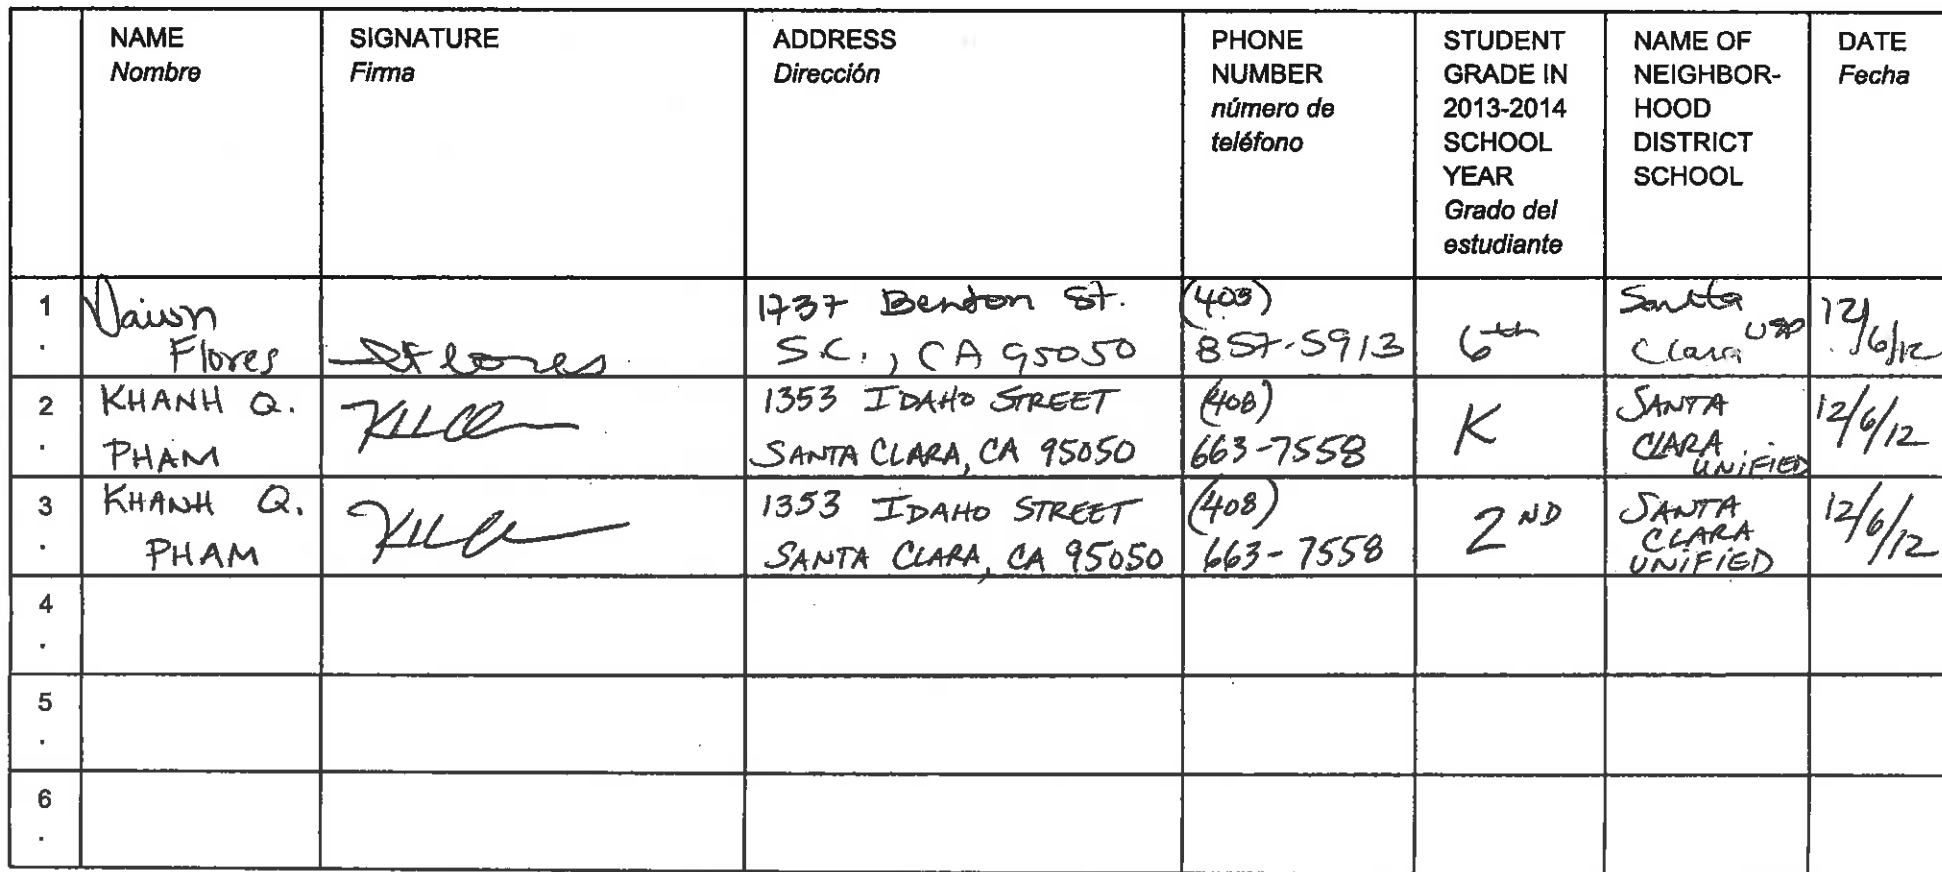 NAME
Nombre
SIGNATURE
Firma
ADDRESS
Dirección
PHONE
NUMBER
número de
teléfono
STUDENT
GRADE IN
2013-2014
SCHOOL
YEAR
Grado del
estudiante
NAME OF
NEIGHBOR-
HOOD
DISTRICT
SCHOOL
DATE
Fecha
1
.
Flores
Flores
1737 Benton St.
S.C., CA 95050
(403)
857-5913
6th
Santa
Clara USD
12/6/12
2
.
KHANH Q.
PHAM
1353 IDAHO STREET
SANTA CLARA, CA 95050
(408)
663-7558
K
SANTA
CLARA
UNIFIED
12/6/12
3
.
KHANH Q.
PHAM
1353 IDAHO STREET
SANTA CLARA, CA 95050
(408)
663-7558
2ND
SANTA
CLARA
UNIFIED
12/6/12
4
.
5
.
6
.